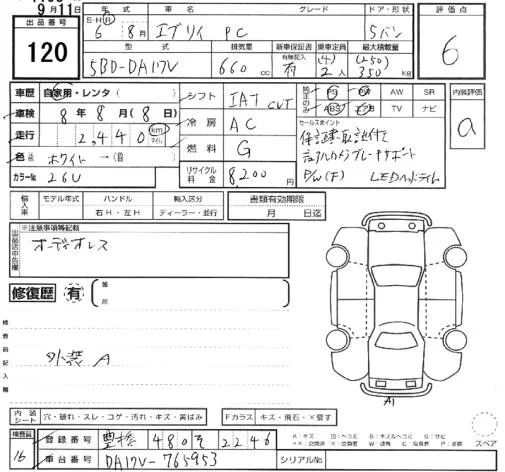 9月11日
出品番号
120
S・H・R 年 車名 グレード ドア・形状
6 8月 エブリイ PC 5バン
評価点
6
型式 排気量 新車保証書 乗車定員 最大積載量
有無記入 (4) (250)
5BD-DA17V 660 cc 有 2人 350 kg
車歴 自家用・レンタ( )
シフト IAT CVT
純正のみ PS PW AW SR
ABS エアB TV ナビ
内装評価
a
車検 8年8月(8日)
走行 2,440 km マイル
冷房 AC
セールスポイント
色 ホワイト →(色 )
燃料 G
カラーNo. 26U
リサイクル料金 8,200円
P/W(F) LEDヘッドライト
輸入車 モデル年式 ハンドル 輸入区分 書類有効期限
年 右H・左H ディーラー・並行 月 日迄
出品店申告欄
※注意事項等記載
オーディオレス
修復歴 有 箇所
検査員記入欄
外装 A
A1
内装シート 穴・破れ・スレ・コゲ・汚れ・キズ・黄ばみ Fガラス キズ・飛石・×要す
スペア
検査員
16
登録番号 豊橋 480 そ 2246
車台番号 DA17V-765953 シリアルNo.